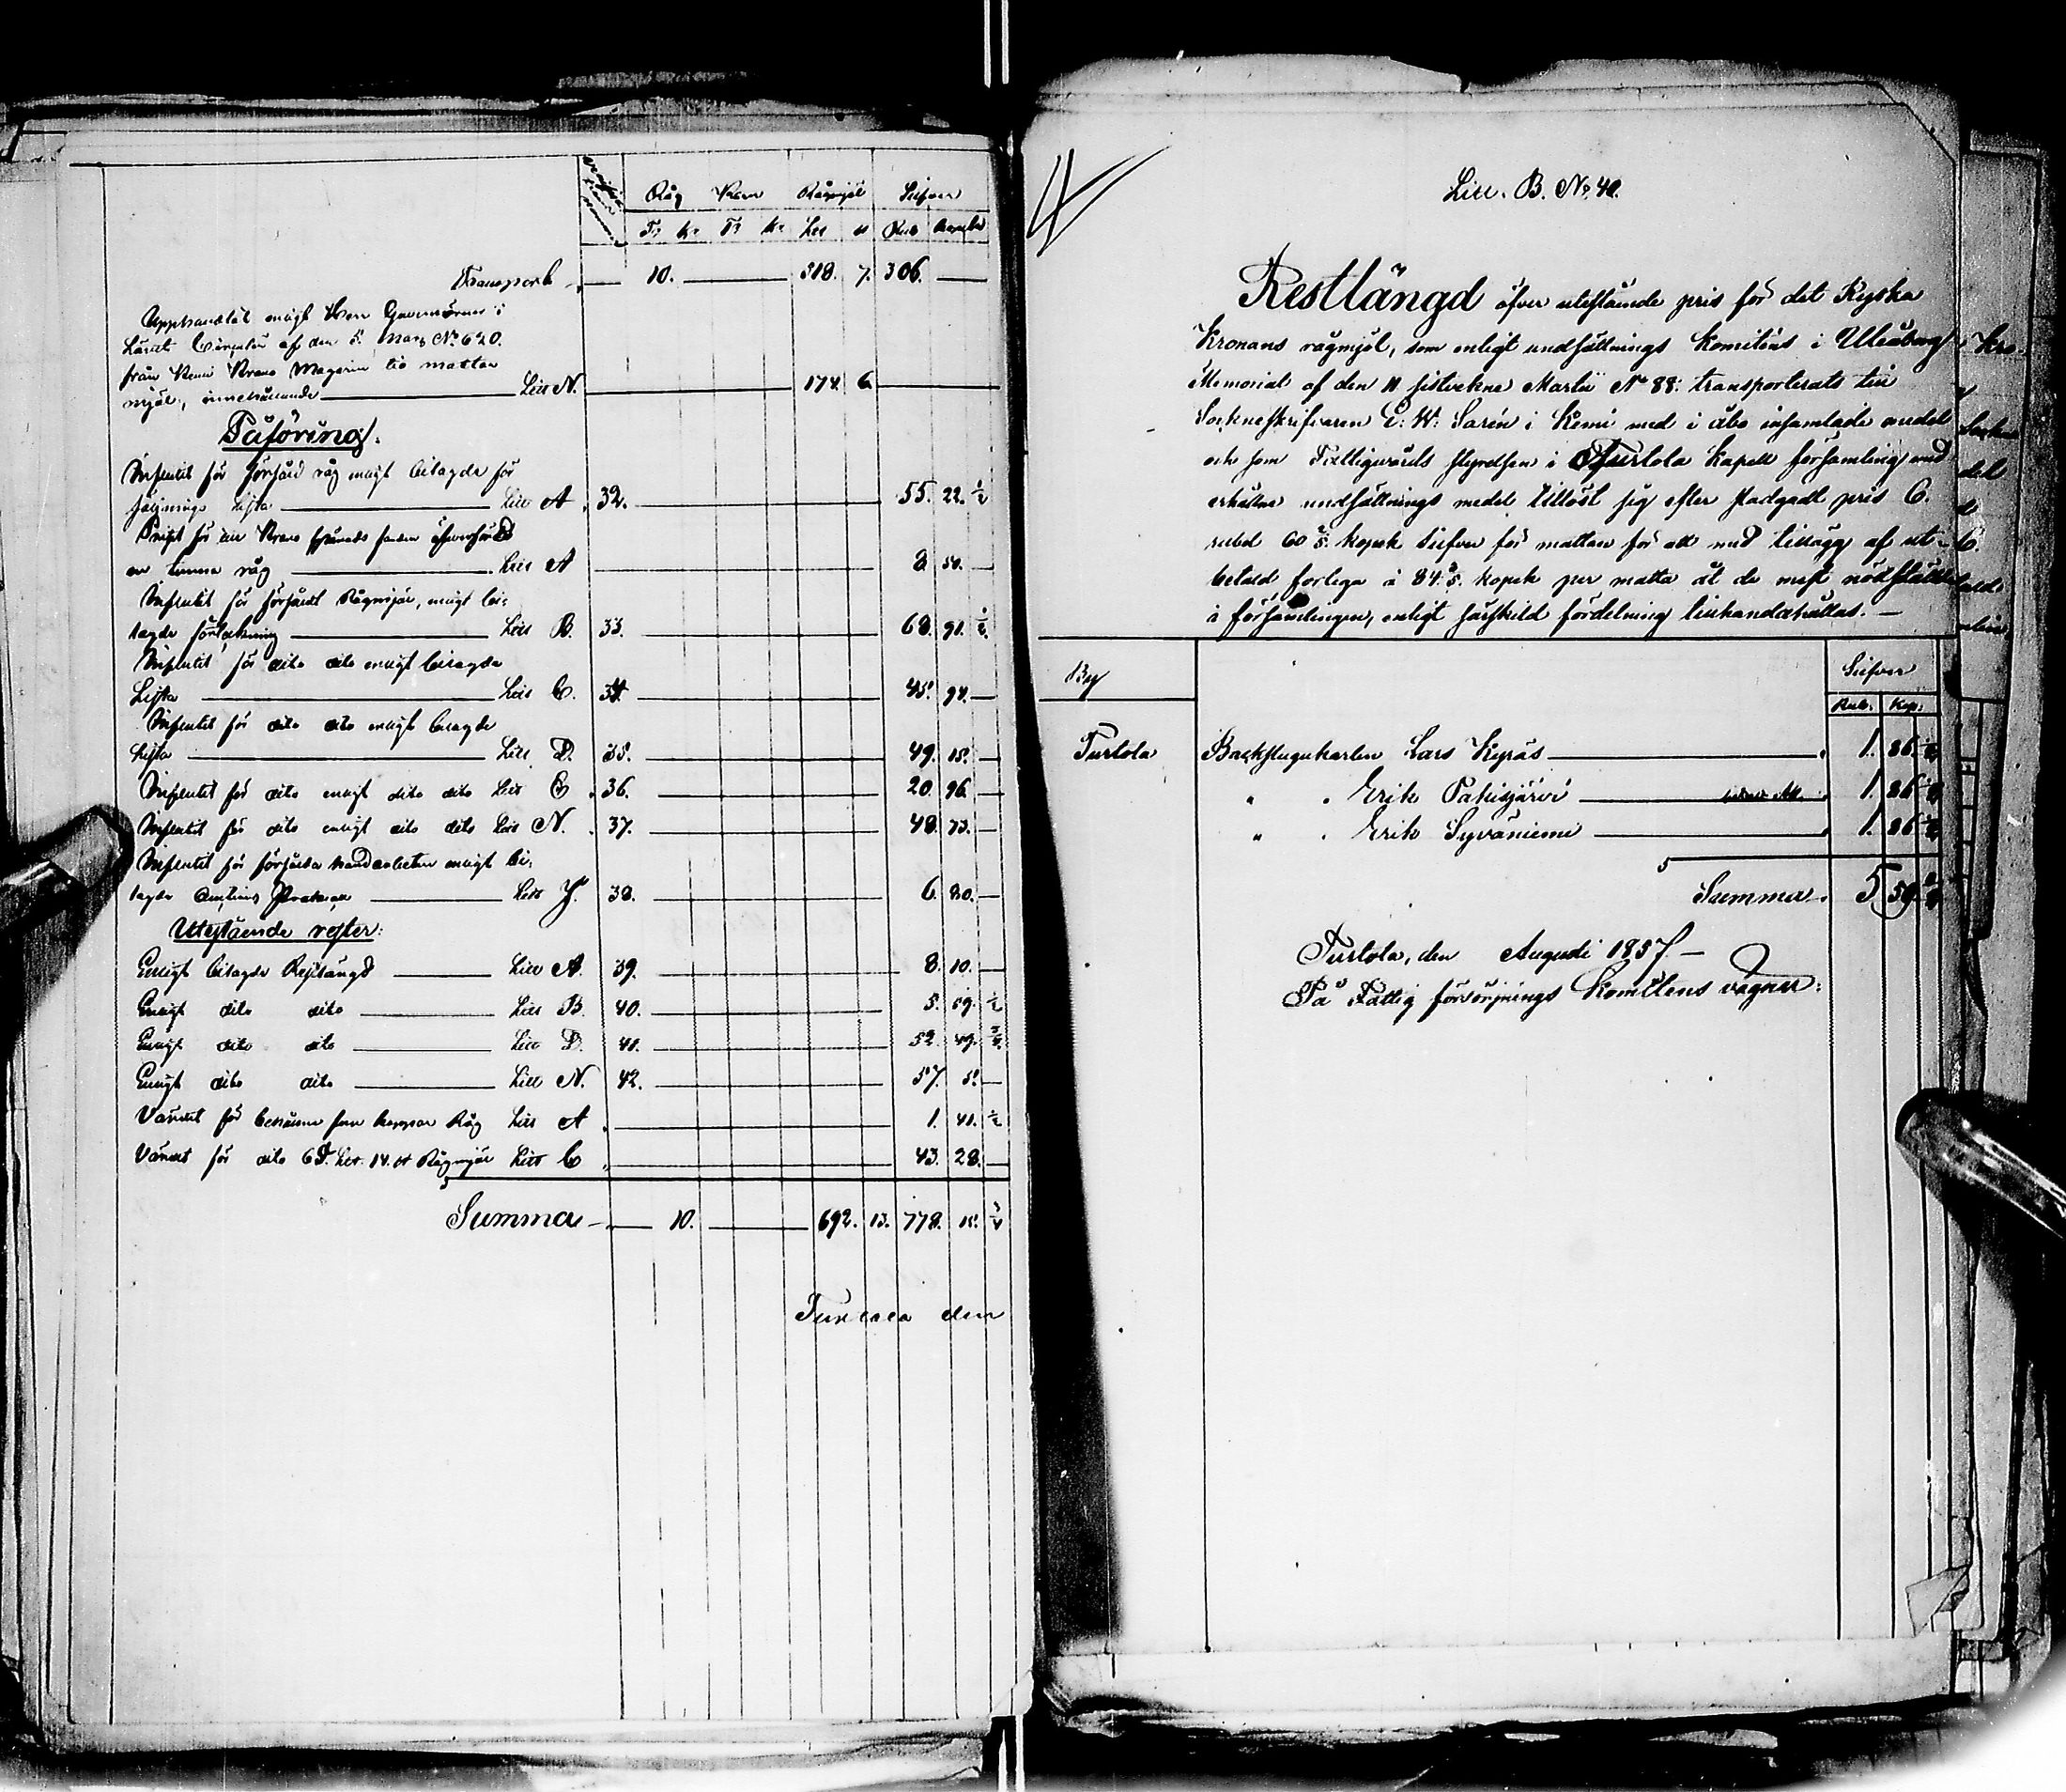 Råg Korn Rågmjöl Silfver
Tr Kr Tr Kr Lis ℔ Rub Kopek
Transport 10. 318. 7. 306.
Upphandlat enligt Herr Gouvernörens i
Länet Circulär af den 5. Mars No 620.
från Kemi Krono Magasin tio mattor
mjöl, innehållande Litt N. 174. 6.
Påföring.
Influtit för försåld råg enligt bilagde för
säljnings lista Litt A 32. 55. 22. 1/2
Priset för en Krono
en tunna råg Litt A 8. 54.
Influtit för försåldt Rågmjöl, enligt bi-
lagde förteckning Litt B. 33. 68. 91. 1/2
Influtit för dito dito enligt bilagde
Lista Litt C. 34. 45. 94.
Influtit för dito dito enligt bilagde
Lista Litt D. 35. 49. 15.
Influtit för dito enligt dito dito Litt E. 36. 20. 96.
Influtit för dito enligt dito dito Litt N. 37. 48. 73.
Influtit för försålda handarbeten enligt bi-
lagde Auctions Litt Y. 38. 6. 80.
Utestående rester:
Enligt bilagde Restlängd Litt A. 39. 8. 10.
Enligt dito dito Litt B. 40. 5. 59. 1/2
Enligt dito dito Litt D. 41. 52. 49. 3/4
Enligt dito dito Litt N. 42. 57. 5.
Värdet för bekomne fem kappar Råg Litt A 1. 41. 1/2
Värdet för dito 6 Lis. 14 ℔ Rågmjöl Litt C 43. 28.
Summa 10. 692. 13. 778. 15. 3/4
Turtola den
Litt. B. No 40.
Restlängd öfver utestående pris för det Ryska
Kronans rågmjöl, som enligt undsättnings Komiténs i Uleåborg
Memorial af den 11 sistvekne Martii No 88: transporterats till
Sockneskrifvaren E: W: Sarén i Kemi med i Åbo insamlade medel
och som Fattigvårds styrelsen i Turtola Kapell församling med
erhållne undsättnings medel tillöst sig efter stadgadt pris 6.
rubel 60 3/5. kopek Silfver för mattan för att med tillägg af ut-
betald forlega à 84. 3/5. kopek per matta åt de mest nödstälde
i församlingen, enligt särskild fördelning tillhandahållas.
By Silfver
Rub. Kop.
Turtola Backstugukarlen Lars Keyräs 1. 86. 1/2
" " Erik Pakisjärvi 1. 86 1/2
" " Erik Syväniemi 1. 86 1/2
Summa 5 59 1/2
Turtola, den Augusti 1857.
På Fattig försörjnings Komiténs vägnar: